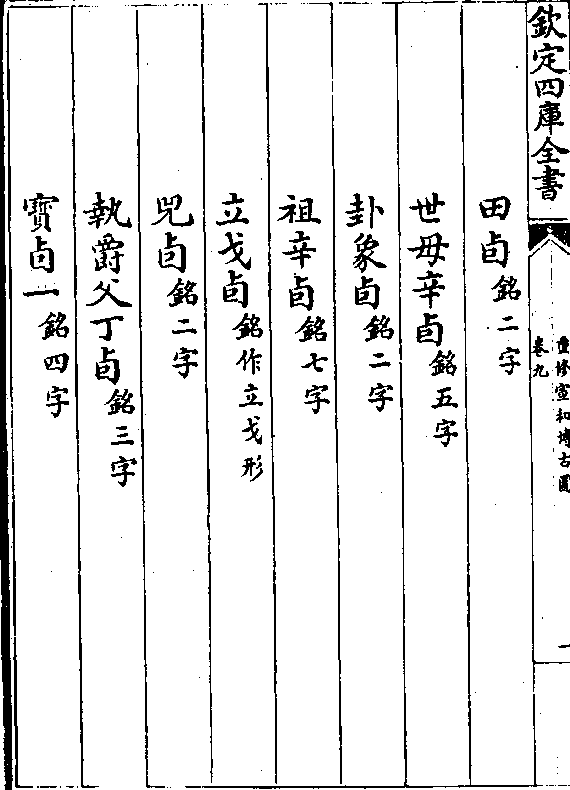 欽定四庫全書
重修宣和博古圖
卷九
一
田卣銘二字
世母辛卣銘五字
卦象卣銘二字
祖辛卣銘七字
立戈卣銘作立戈形
兕卣銘二字
執爵父丁卣銘三字
寶卣一銘四字